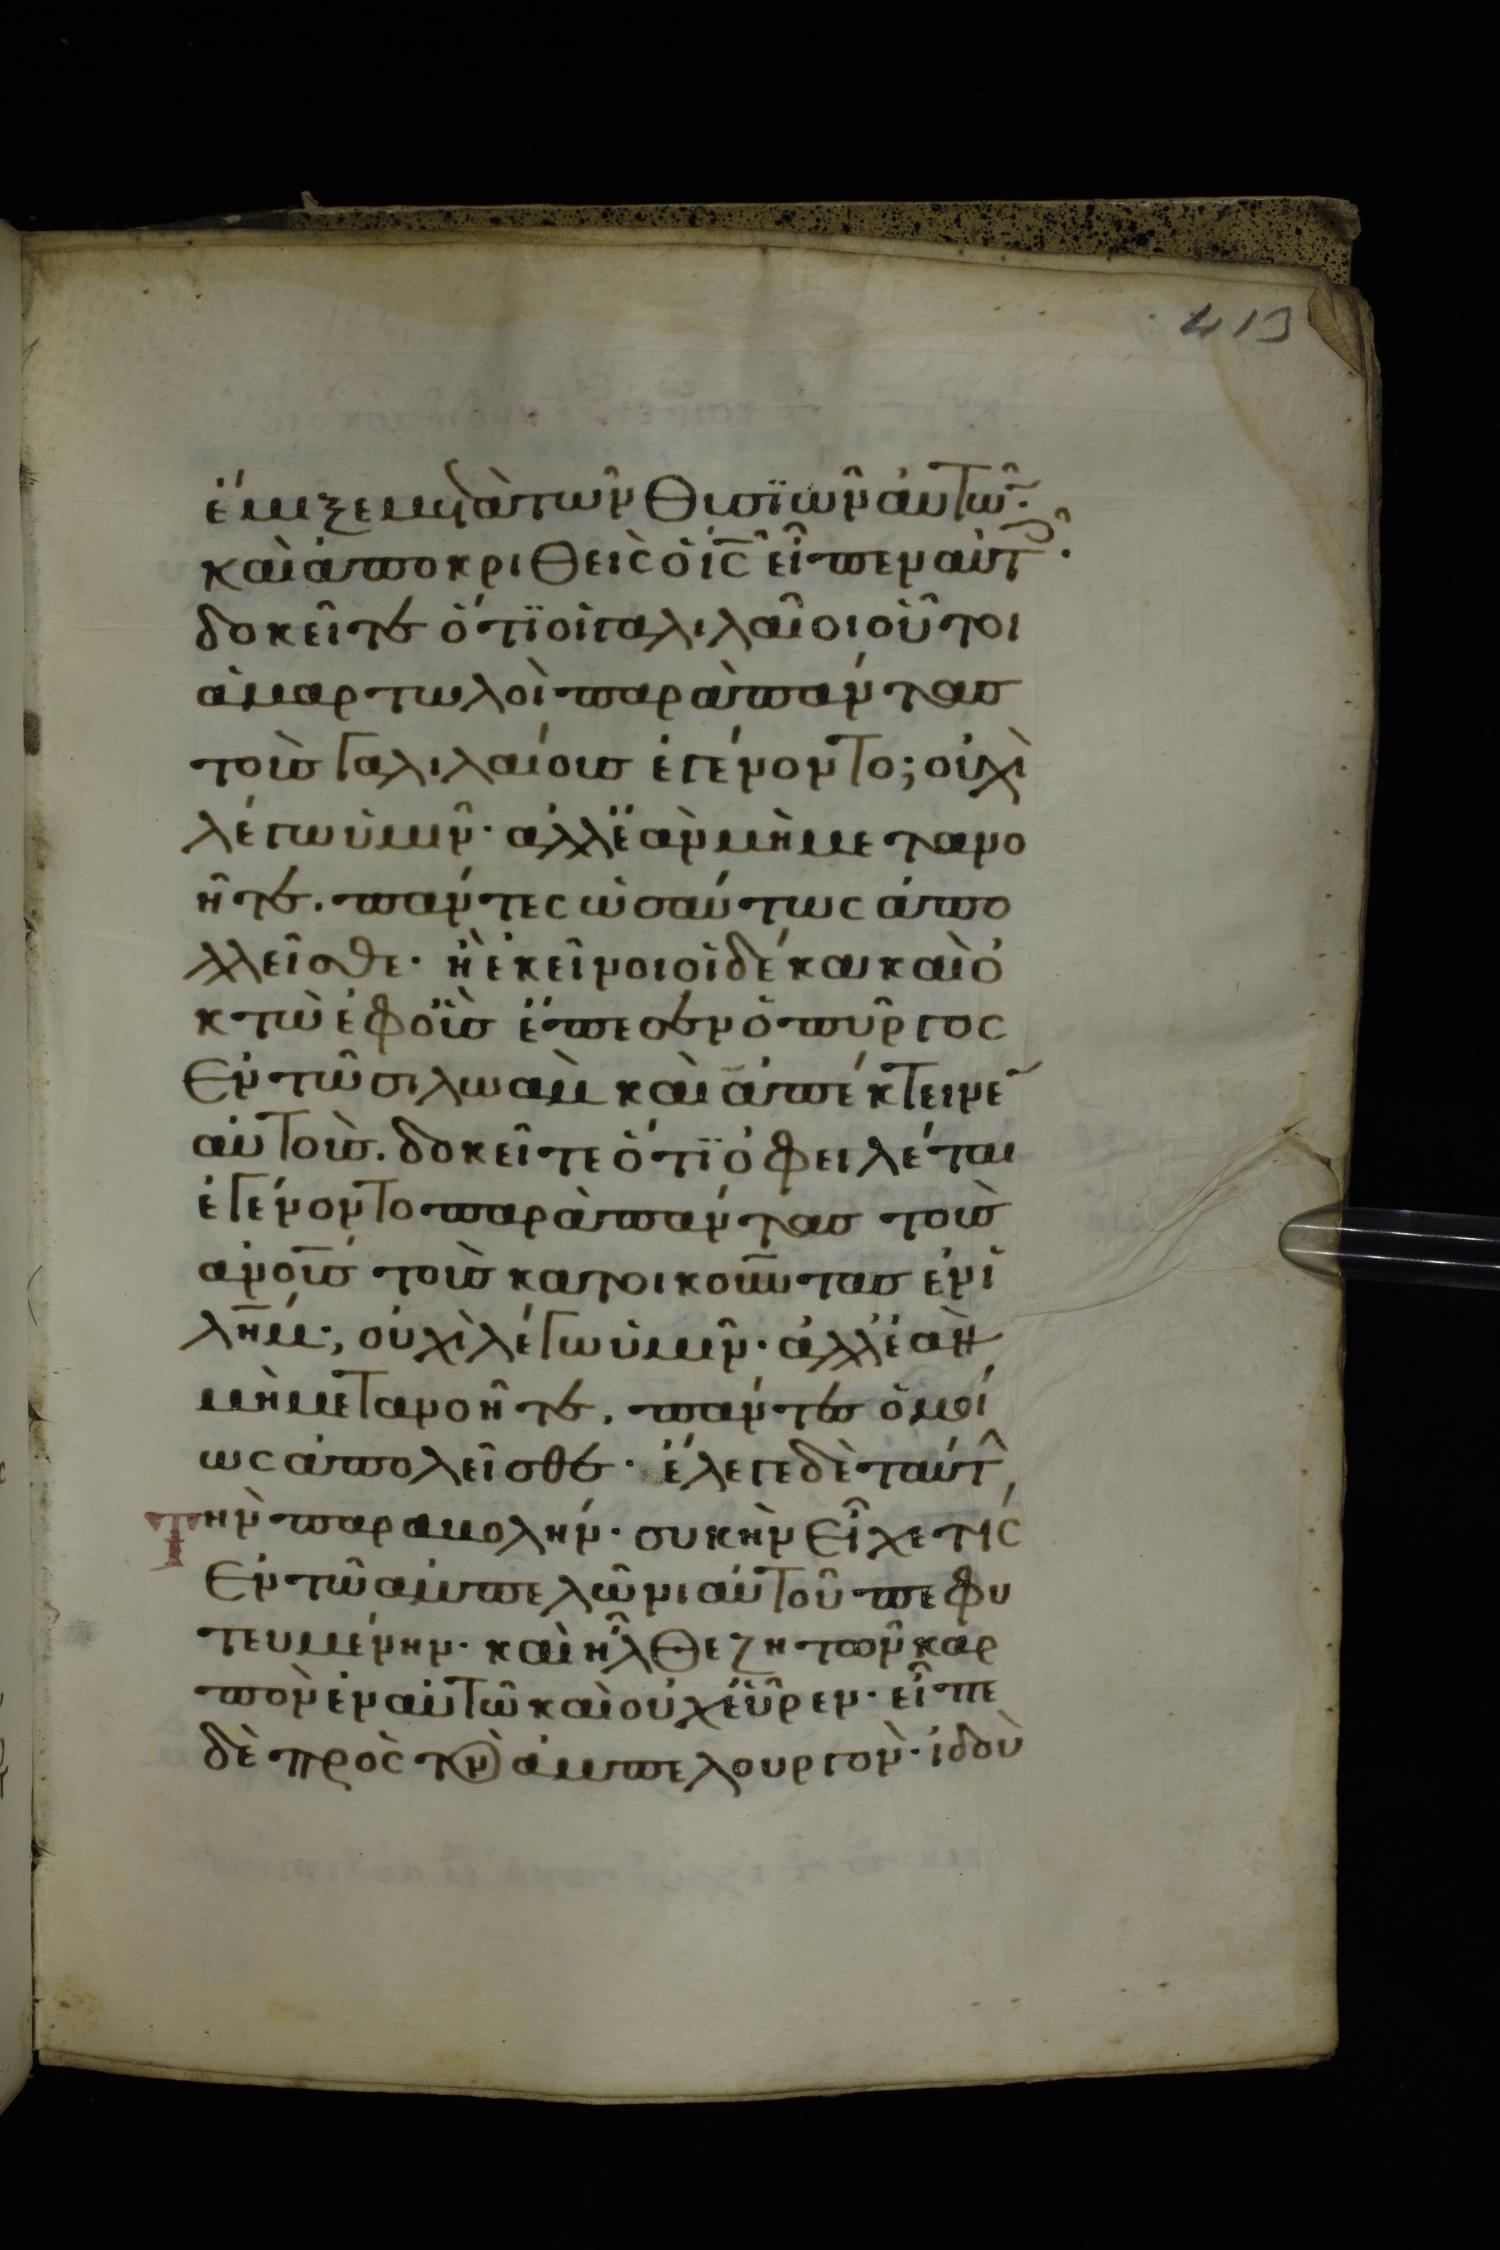 413
ἔμιξε μετὰ τῶν θυσϊῶν ἀυτῶ̃·
καὶ ἀποκριθεὶς ὁ ις̅ εἶπεν αὐτ̅·
δοκεῖτε ὅτϊ οἱ γαλιλαῖοι οὗτοι
ἁμαρτωλοὶ παρὰ πάντας
τοὺς Γαλιλαίους ἐγένοντο; οὐχὶ
λέγω ὑμῖν· ἀλλ ἐὰν μὴ μετανο
ῆτε. πάντες ὡσαύτως ἀπο
λλεῖσθε· ἢ ἐκεῖνοι οἱ δέκα καὶ ὀ
κτὼ ἐφ οὓς ἔπεσεν ὁ πύργος
Ἐν τῶ σιλωὰμ καὶ ἀπέκτεινε̃
αὐτοὺς. δοκεῖτε ὅτϊ ὀφειλέται
ἐγένοντο παρὰ πάντας τοὺς
ἀνο̅υς τοὺς κατοικοῦντας ἐν ϊ
λη̅μ·; οὐχὶ λέγω ὑμῖν· ἀλλ ἐὰν
μὴ μετανοῆτε. πάντες ὁμοί
ως ἀπολεῖσθε· ἔλεγε δὲ ταύτ̅
Τὴν παραβολήν· συκὴν Εἶχε τίς
Ἐν τῶ ἀμπελῶνι αὐτοῦ πεφυ
τευμένην· καὶ ἦλθε ζητῶν καρ
πὸν ἐν αὐτῶ καὶ οὐχ εὗρεν· εἶπε
δὲ πρὸς τὸν ἀμπελουργὸν· ἰδοὺ